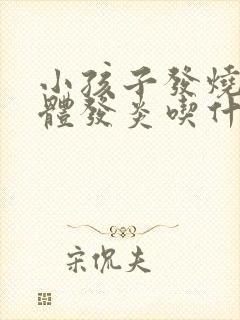 小孩子發燒
體發炎喫什
宋侃夫